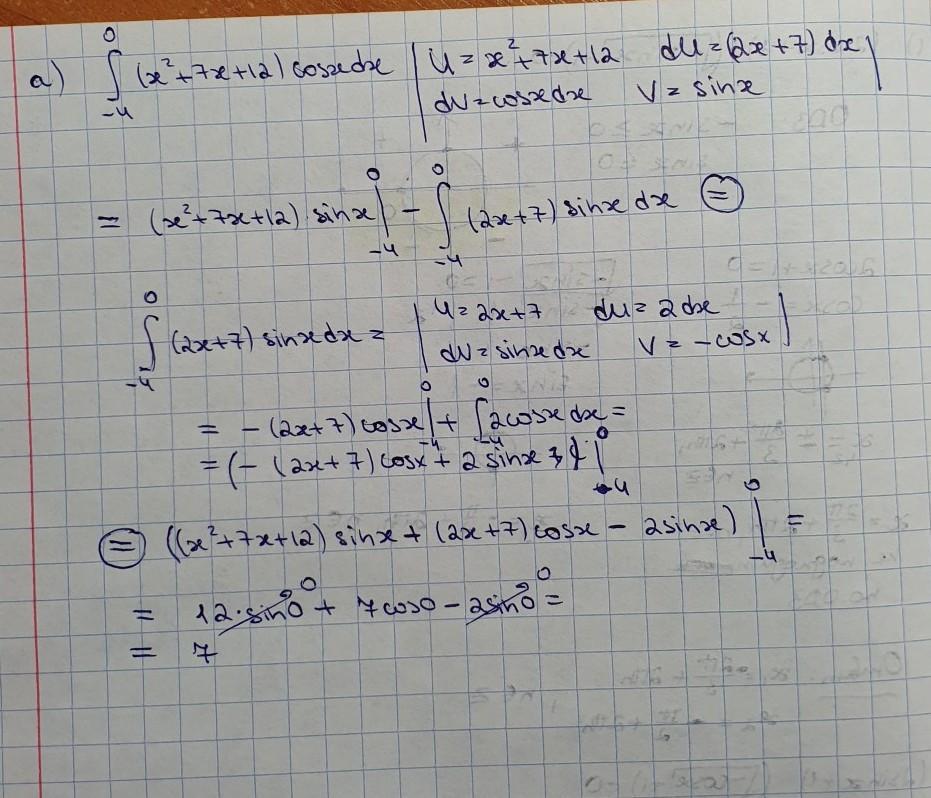 а) ∫₋₄⁰ (x²+7x+12) cosx dx | u = x²+7x+12 du = (2x+7) dx |
| dv = cosx dx v = sinx |
= (x²+7x+12) sinx |₋₄⁰ − ∫₋₄⁰ (2x+7) sinx dx ⊜
∫₋₄⁰ (2x+7) sinx dx = | u = 2x+7 du = 2dx |
| dv = sinx dx v = −cosx |
= −(2x+7) cosx |₋₄⁰ + ∫₋₄⁰ 2cosx dx =
= (−(2x+7) cosx + 2 sinx) |₋₄⁰
⊜ ((x²+7x+12) sinx + (2x+7) cosx − 2sinx) |₋₄⁰ =
= 12·sin0 ⁰ + 7cos0 − 2sin0 ⁰ =
= 7